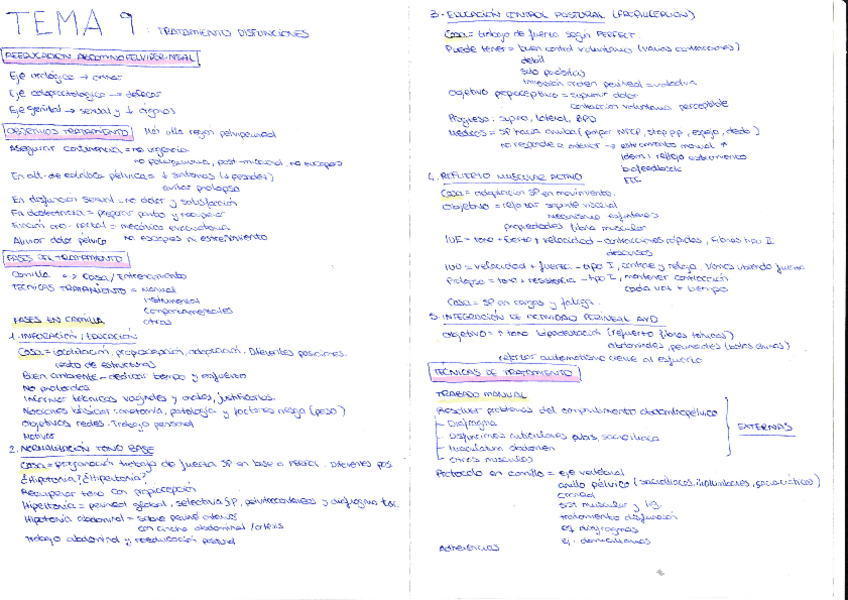 TEMA 9: TRATAMIENTO DISFUNCIONES
REEDUCACIÓN ABDOMINOPELVIPERINEAL
Eje urológico → orinar
Eje coloproctológico → defecar
Eje genital → sexual y ↓ órganos
OBJETIVOS TRATAMIENTO Más allá región pelviperineal
Asegurar continencia = no urgencia
no polaquiuria, post-miccional, no escapes
En alt. de estática pélvica = ↓ síntomas (↓ pesadez)
evitar prolapso
En disfunción sexual = no dolor y satisfacción
En obstetricia = preparar parto y recuperar
Función ano-rectal = mecánica evacuatoria
no escapes ni estreñimiento
Aliviar dolor pélvico
FASES DEL TRATAMIENTO
Camilla ↔ Casa / Entrenamiento
TÉCNICAS TRATAMIENTO = Manual
Instrumental
Comportamentales
otras
FASES EN CAMILLA
1. INFORMACIÓN / EDUCACIÓN
Casa = localización, propiocepción, adaptación. Diferentes posiciones.
resto de estructuras
Buen ambiente - dedicar tiempo y esfuerzo
No protocolos
Informar técnicas vaginales y anales, justificarlas.
Nociones básicas: anatomía, patología y factores riesgo (peso)
Objetivos reales. Trabajo personal
Motivar
2. NORMALIZACIÓN TONO BASE
Casa = programación trabajo de fuerza SP en base a PERFECT. Diferentes pos.
¿Hipotonía? ¿Hipertonía?
Recuperar tono con propiocepción
Hipertonía = perineal global, selectiva SP, pelvitrocantéreos y diafragma tor.
Hipotonía abdominal = sobre periné
con cincha abdominal / ortesis
Trabajo abdominal y reeducación postural
3. EDUCACIÓN CONTROL POSTURAL (PROPIOCEPCIÓN)
Casa = trabajo de fuerza según PERFECT.
Puede tener = buen control voluntario (varias contracciones)
débil
sin parásitas
inversión orden perineal = valsalva
Objetivo propioceptivo = suprimir dolor
contracción voluntaria perceptible
Progreso: supino, lateral, BPD
Médicos = SP hacia arriba (stop pp, espejo, dedo)
no responde a anterior → estiramiento manual ↑
idem: reflejo estiramiento
biofeedback
EEF
4. REFUERZO MUSCULAR ACTIVO
Casa = adaptación SP en movimiento.
Objetivo = reforzar soporte visceral
mecanismo esfinteres
propiedades fibra muscular
IUE = tono + fuerza y velocidad - contracciones rápidas, fibras tipo II
descansos
IUU = velocidad + fuerza - tipo I, contrae y relaja. Vamos variando fuerza
Prolapso = tono + resistencia - tipo I, mantener contracción
cada vez + tiempo
Casa = SP en cargas y fatiga.
5. INTEGRACIÓN DE ACTIVIDAD PERINEAL AVD
Objetivo = ↑ tono bipedestación (refuerzo fibras tónicas)
abdominales, perineales (bolas chinas)
reforzar automatismo perineal al esfuerzo
TÉCNICAS DE TRATAMIENTO
TRABAJO MANUAL
Resolver problemas del compartimento abdominopélvico
- Diafragma
- Disfunciones articulares pubis, sacroilíaca
- Musculatura abdomen
- Otros músculos
EXTERNAS
Protocolo en camilla = eje vertebral
anillo pélvico (sacroilíacas, iliolumbares, sacrociáticos)
craneal
sist muscular y lig.
tratamiento disfunción
ej. diafragmas
ej. domiciliarios
Adherencias